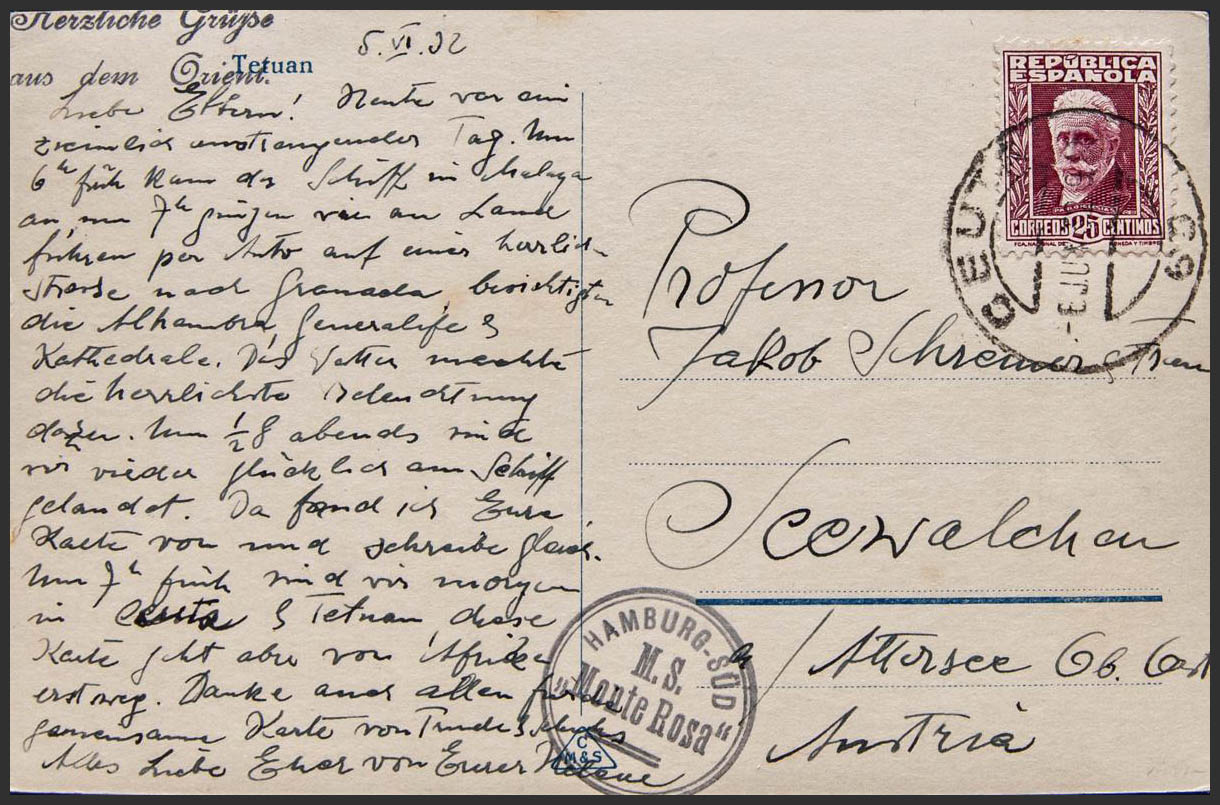 Herzliche Grüße
aus dem Orient.
Tetuan
5.VI.32
Liebe Eltern! Heute war ein
ziemlich anstrengender Tag. Um
6h früh kam das Schiff in Malaga
an, um 7h gingen wir an Land
fuhren per Auto auf einer herrlich-
Strasse nach Granada, besichtigten
die Alhambra, Generalife &
Kathedrale. Das Wetter machte
die herrlichste Beleuchtung
dazu. Um ½8 abends sind
wir wieder glücklich am Schiff
gelandet. Da fand ich Eure
Karte vor und schreibe gleich.
Um 7h früh sind wir morgen
in Ceuta & Tetuan diese
Karte geht aber von Afrika
erst weg. Danke auch allen für die
gemeinsame Karte von Trude &
Alles Liebe Euch von Eurer Helene
REPÚBLICA
ESPAÑOLA
CORREOS 25 CENTIMOS
CEUTA
Professor
Jakob
Seewalchen
a/Attersee Ob. Öst
Austria
HAMBURG-SÜD
M.S.
„Monte Rosa“
C
M&S